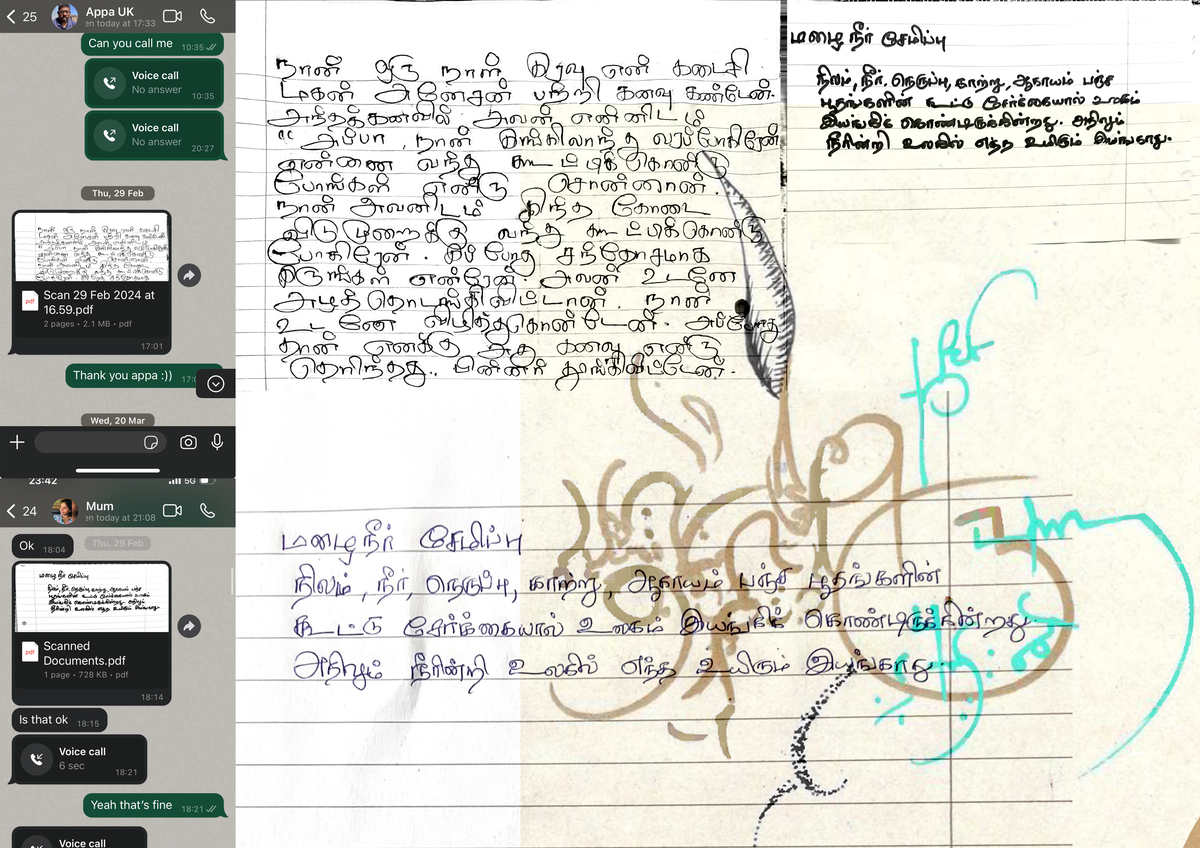 25
Appa UK
en today at 17:33
Can you call me 10:35
Voice call
No answer
10:35
Voice call
No answer
20:27
Thu, 29 Feb
pdf
Scan 29 Feb 2024 at
16.59.pdf
2 pages • 2.1 MB • pdf
17:01
Thank you appa :))
Wed, 20 Mar
23:42
5G
24
Mum
en today at 21:08
Ok 18:04
Thu, 29 Feb
மழை நீர் சேமிப்பு
pdf
Scanned
Documents.pdf
1 page • 728 KB • pdf
18:14
Is that ok 18:15
Voice call
6 sec
18:21
Yeah that's fine 18:21
Voice call
நான் ஒரு நாள் இரவு என் கடைசி
மகன் அனேசன் பற்றி கனவு கண்டேன்.
அந்தக்கனவில் அவன் என்னிடம்
"அப்பா, நான் இங்கிலாந்து வரப்போகிறேன்
என்னை வந்து கூட்டிக்கொண்டு
போங்கள் என்று சொன்னான்.
நான் அவனிடம் இந்த கோடை
விடுமுறைக்கு வந்து கூட்டிக்கொண்டு
போகிறேன். இப்போது சந்தோசமாக
இருங்கள் என்றேன். அவன் உடனே
அழத்தொடங்கிவிட்டான். நான்
உடனே விழித்துகொண்டேன். அப்போது
தான் எனக்கு அது கனவு என்று
தெரிந்தது.. பின்னர் தூங்கிவிட்டேன்.
மழை நீர் சேமிப்பு
நிலம், நீர், நெருப்பு, காற்று, ஆகாயம் பஞ்ச
பூதங்களின் கூட்டு சேர்கையால் உலகம்
இயங்கிக் கொண்டிருக்கின்றது. அதிலும்
நீரின்றி உலகில் எந்த உயிரும் இயங்காது.
மழை நீர் சேமிப்பு
நிலம், நீர், நெருப்பு, காற்று, ஆகாயம் பஞ்ச பூதங்களின்
கூட்டு சேர்க்கையால் உலகம் இயங்கிக் கொண்டிருக்கின்றது.
அதிலும் நீரின்றி உலகில் எந்த உயிரும் இயங்காது.